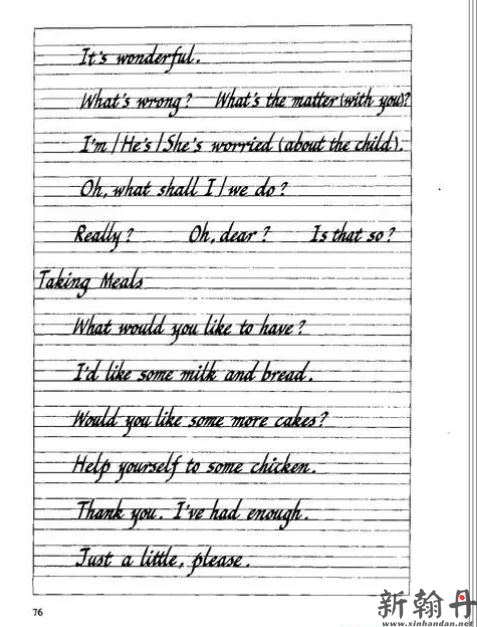 It's wonderful.
What's wrong? What's the matter (with you)?
I'm / He's / She's worried (about the child).
Oh, what shall I / we do?
Really? Oh, dear? Is that so?
Taking Meals
What would you like to have?
I'd like some milk and bread.
Would you like some more cakes?
Help yourself to some chicken.
Thank you. I've had enough.
Just a little, please.
76
新翰丹
www.xinhandan.net